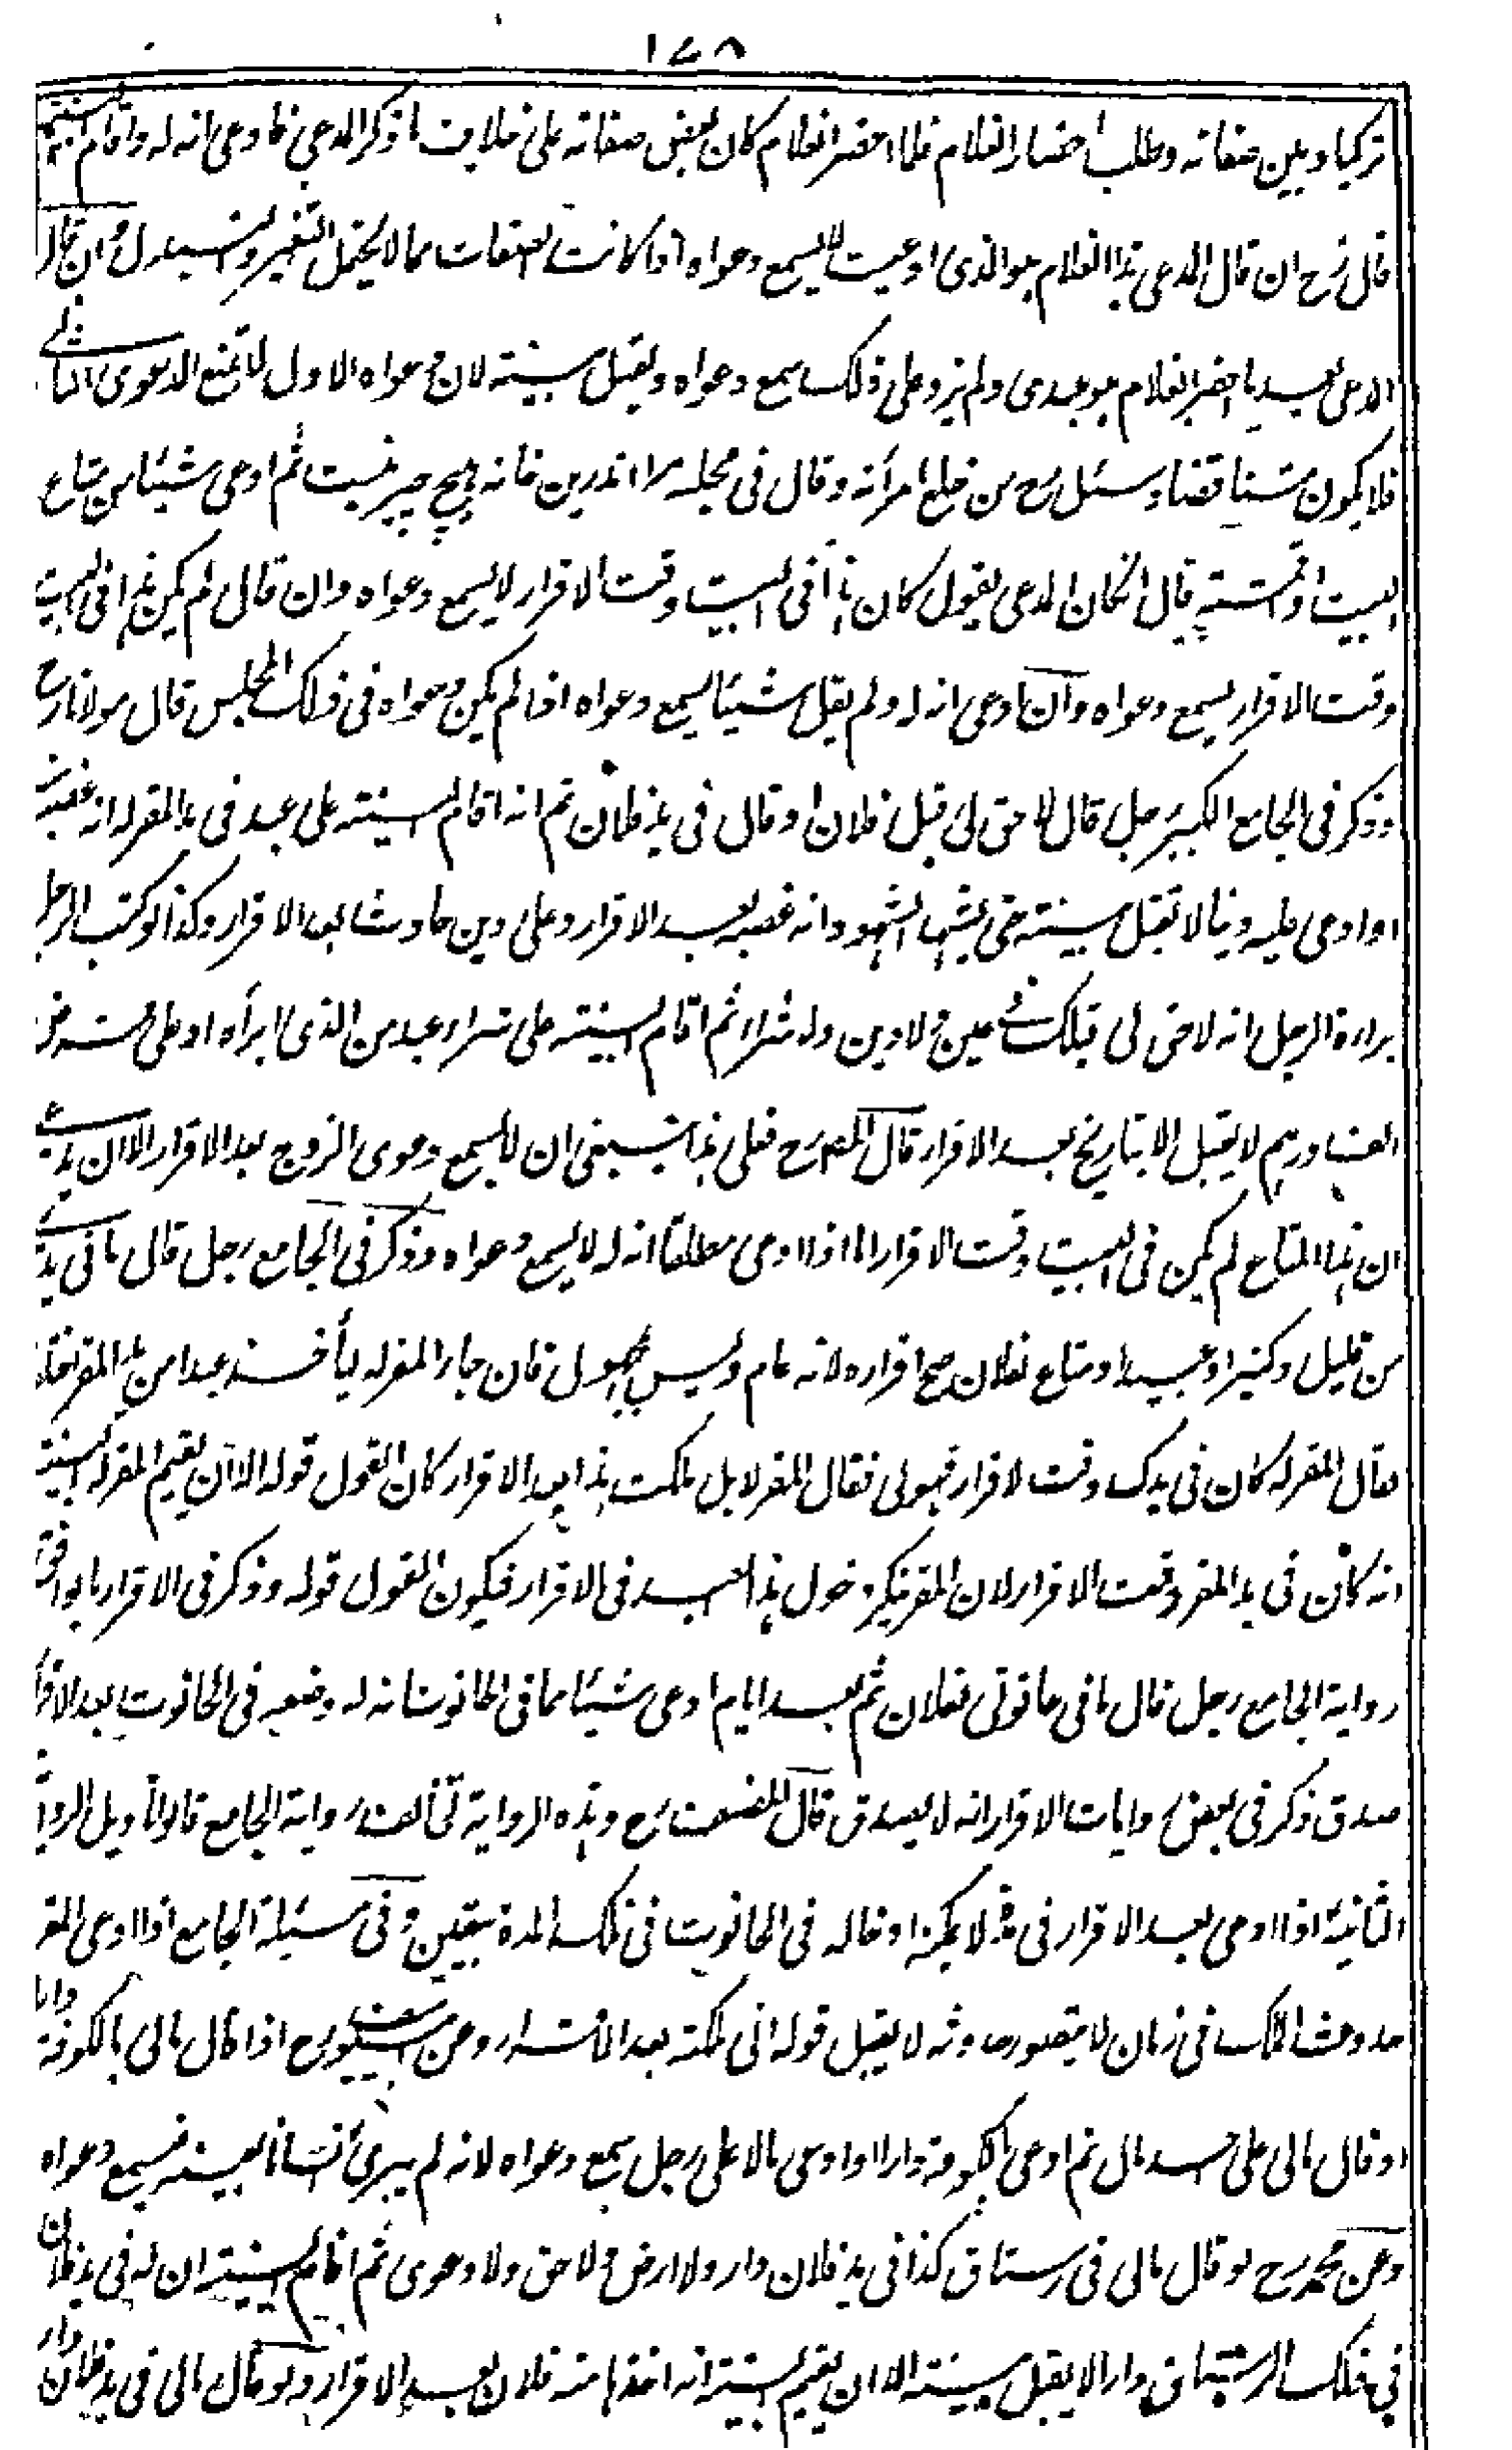 ١٧٨
تركيا وبين صفاته وطلب احضار الغلام فلما احضر الغلام كان بعض صفاته على خلاف ما ذكر المدعي فادعى انه له واقام البينة
قال رح ان قال المدعي هذا الغلام هو الذي ادعيت لا يسمع دعواه اذا كانت الصفات مما لا يحتمل التغير والتبدل وان قال
المدعي بعد ما احضر الغلام هو عبدي ولم يزد على ذلك يسمع دعواه ويقبل بينته لان دعواه الاول لا تمنع الدعوى الثاني
فلا يكون متناقضا وسئل رح من خلع امرأته وقال في مجلسه مرا اندرين خانه هيچ چيز نيست ثم ادعى شيئا من متاع
البيت او قمشته قال انكان المدعي يقول كان هذا في البيت وقت الاقرار لا يسمع دعواه وان قال لم يكن هذا في البيت
وقت الاقرار يسمع دعواه وان ادعى انه له ولم يقل شيئا يسمع دعواه اذا لم يكن دعواه في ذلك المجلس قال مولانا رح
وذكر في الجامع الكبير رجل قال لا حق لي قبل فلان او قال في يد فلان ثم انه اقام البينة على عبد في يد المقر له انه غصبه
او ادعى عليه دينا لا تقبل بينته حتى يشهد الشهود انه غصبه بعد الاقرار وعلى دين حادث بعد الاقرار وكذا لو كتب الرجل
براءة الرجل انه لا حق لي قبلك في عين ولا دين ولا شراء ثم اقام البينة على شراء عبد من الذي ابرأه او على قرض
الف درهم لا يقبل الا بتاريخ بعد الاقرار قال المص رح فعلى هذا ينبغي ان لا يسمع دعوى الزوج بعد الاقرار الا ان يدعي
ان هذا المتاع لم يكن في البيت وقت الاقرار اما اذا ادعى مطلقا انه له لا يسمع دعواه وذكر في الجامع رجل قال ما في يدي
من قليل وكثير او عبيد او متاع لفلان صح اقراره لانه عام وليس بمجهول فان جاء المقر له ليأخذ عبدا من يد المقر
فقال المقر له كان في يدك وقت الاقرار فهو لي فقال المقر لا بل ملكت هذا بعد الاقرار كان القول قوله الا ان يقيم المقر له البينة
انه كان في يد المقر وقت الاقرار لان المقر ينكر دخول هذا العبد في الاقرار فيكون القول قوله وذكر في الاقرار ما يوافق
رواية الجامع رجل قال ما في حانوتي لفلان ثم بعد ايام ادعى شيئا مما في الحانوت انه له وضعه في الحانوت بعد الاقرار
صدق ذكر في بعض روايات الاقرار انه لا يصدق قال المصنف رح وهذه الرواية تخالف رواية الجامع قالوا تأويل الرواية
الثانية اذا ادعى بعد الاقرار في مدة لا يمكنه ادخاله في الحانوت في تلك المدة بيقين وفي مسئلة الجامع اذا ادعى المقر
حدوث الملك في زمان لا يتصور حدوثه لا يقبل قوله اني ملكته بعد الاقرار وعن ابي يوسف رح اذا قال ما لي بالكوفة دار
او قال ما لي على احد مال ثم ادعى بالكوفة دارا او ادعى مالا على رجل يسمع دعواه لانه لم يبرئ انسانا بعينه فيسمع دعواه
وعن محمد رح لو قال ما لي في رستاق كذا في يد فلان دار ولا ارض ولا حق ولا دعوى ثم اقام البينة ان له في يد فلان
في ذلك الرستاق دارا لا يقبل بينته الا ان يقيم البينة انه اخذها منه فلان بعد الاقرار ولو قال ما لي في يد فلان دار